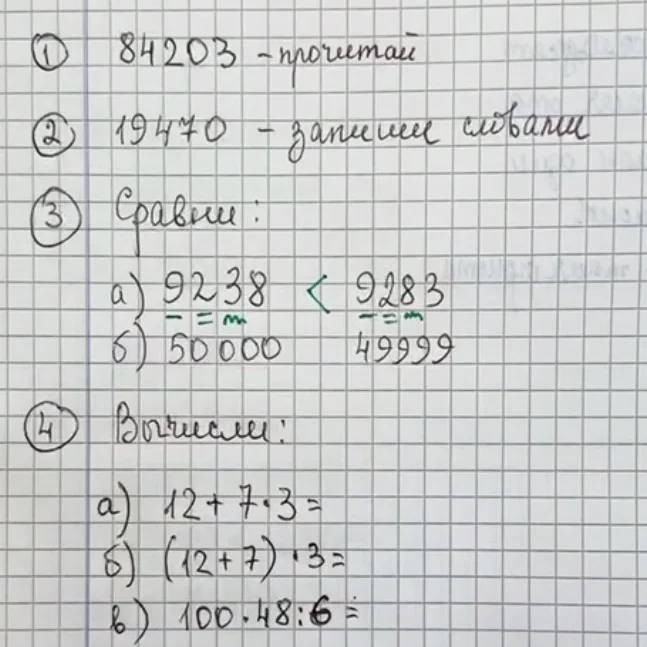 1 84203 - прочитай
2 19470 - запиши словами
3 Сравни:
а) 9238 < 9283
б) 50000 49999
4 Вычисли:
а) 12 + 7 · 3 =
б) (12 + 7) · 3 =
в) 100 · 48 : 6 =